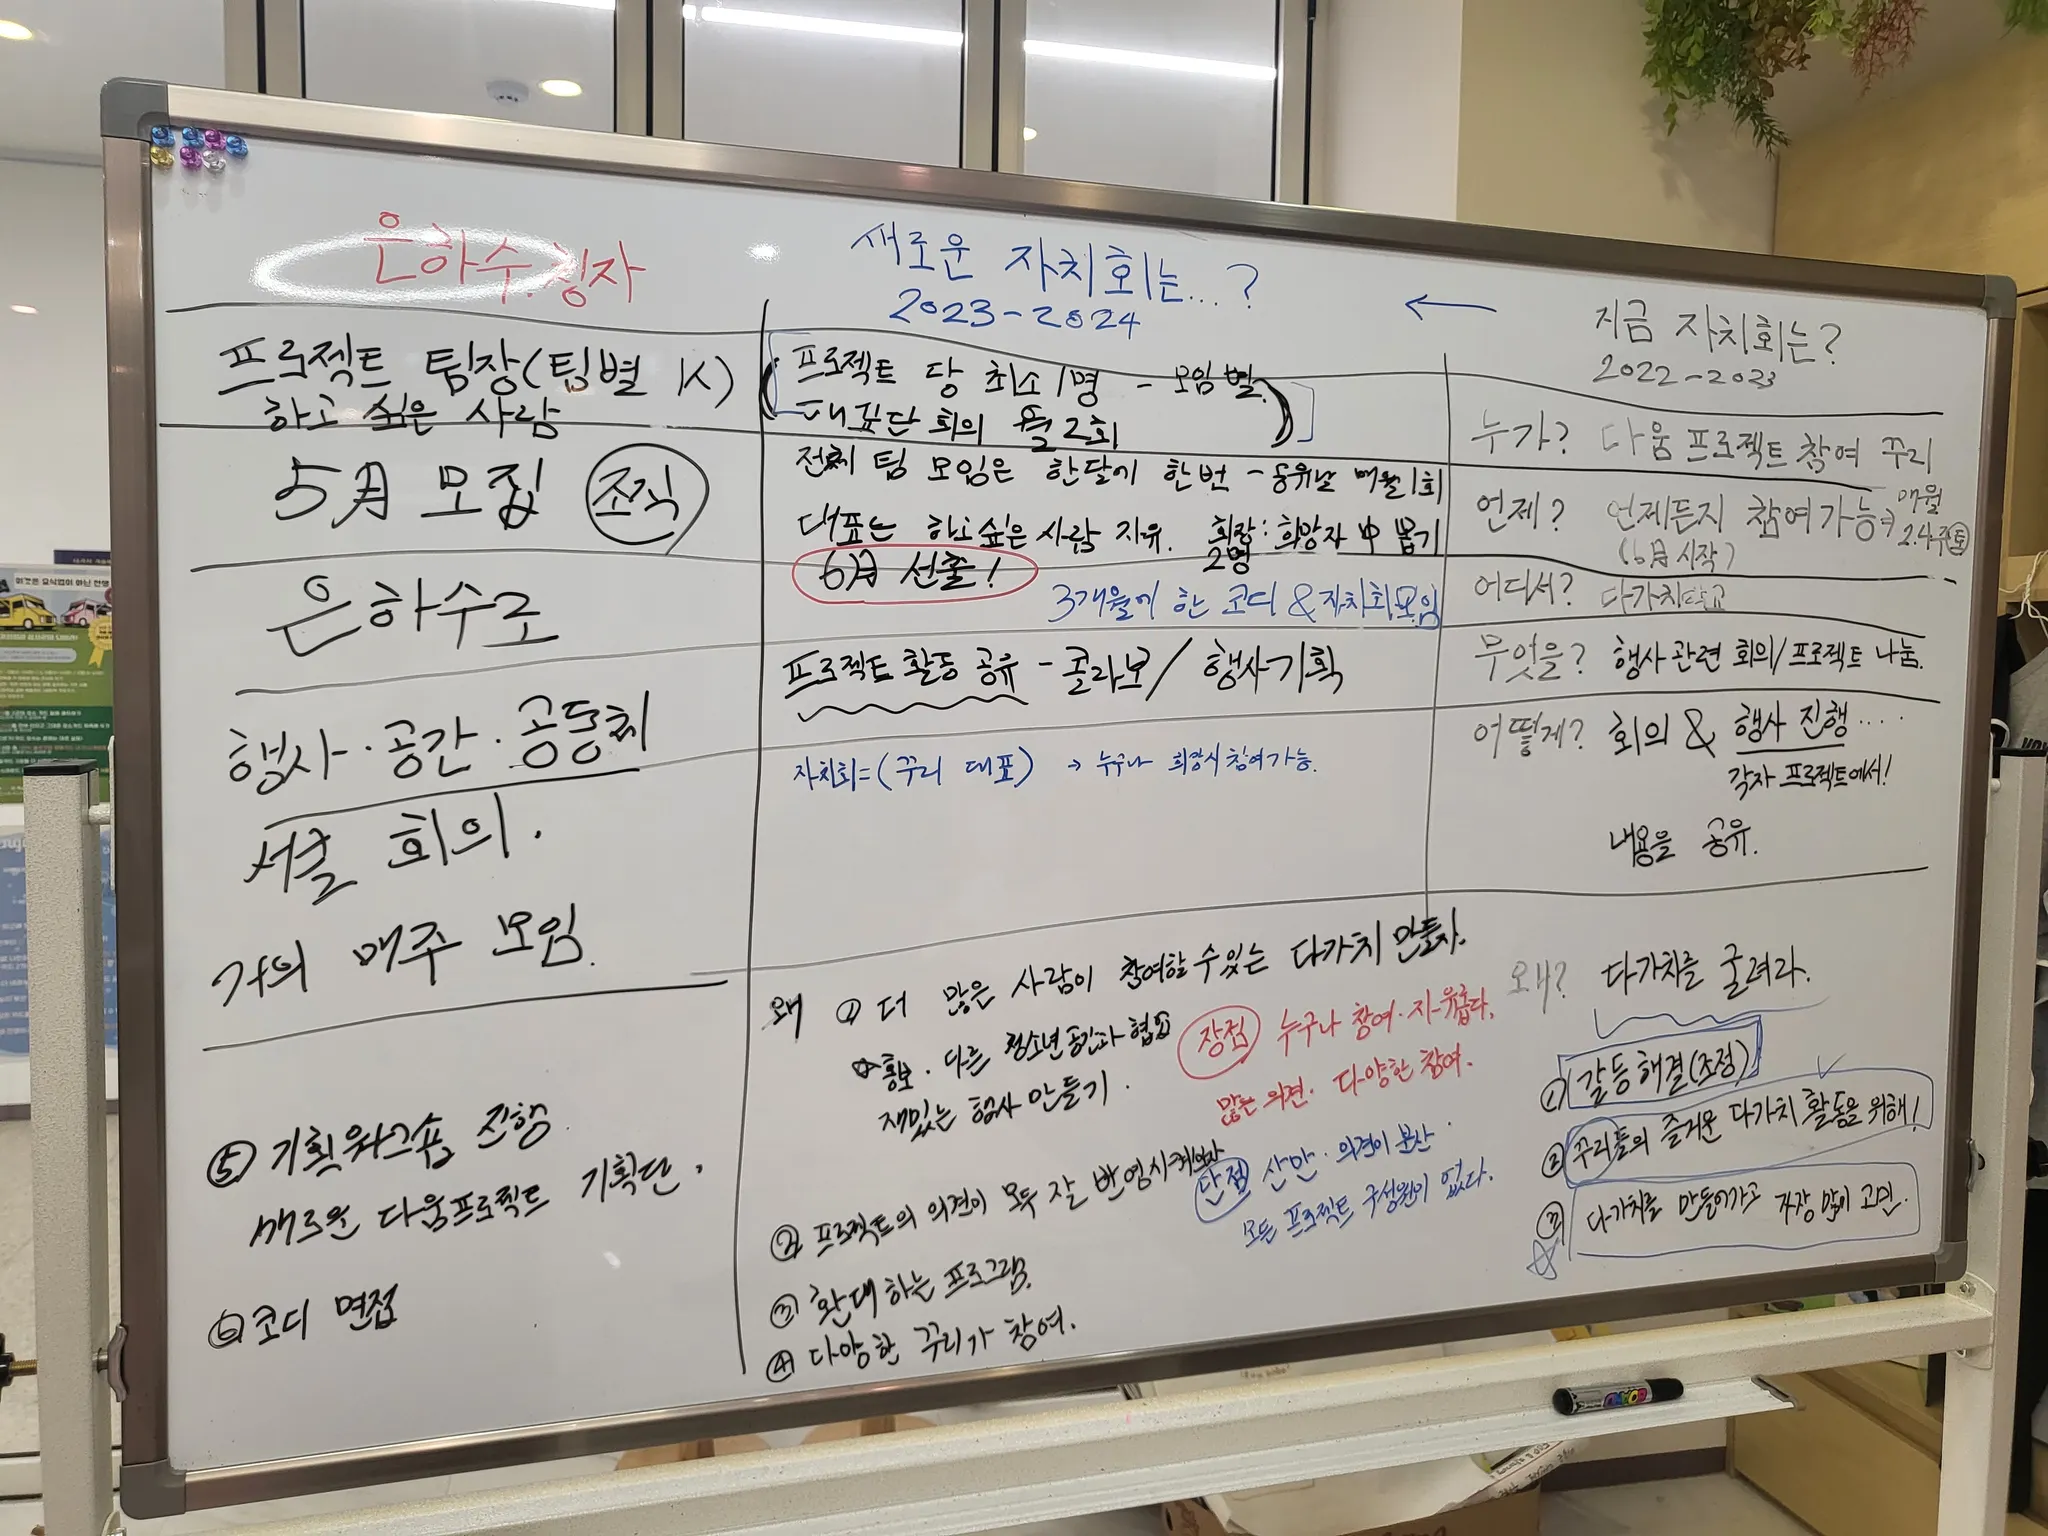 은하수
프로젝트 팀장(팀별 1人)
하고 싶은 사람
5月 모집 조직
은하수로
행사·공간·공동체
서클 회의.
거의 매주 모임.
⑤ 기획워크숍 진행
새로운 다움프로젝트 기획단.
⑥ 코디 면접
새로운 자치회는...?
2023-2024
프로젝트 당 최소 1명 - 모임별
대표단 회의 월 2회
전체 팀 모임은 한달에 한번 - 공유날 매월 1회
대표는 하고싶은 사람 자유. 회장: 희망자 中 뽑기
2명
6月 선출!
3개월에 한 코디 & 자치회모임
프로젝트 활동 공유 - 콜라보/ 행사기획
자치회=(꾸리 대표) → 누구나 희망시 참여가능.
왜 ① 더 많은 사람이 참여할 수 있는 다가치 만들자.
홍보·다른 청소년공간과 협업
재밌는 행사 만들기.
장점 누구나 참여·자유롭다.
많은 의견· 다양한 참여.
단점 산만·의견이 분산·
모든 프로젝트 구성원이 없다.
② 프로젝트의 의견이 모두 잘 반영시키
③ 환대 하는 프로그램.
④ 다양한 꾸리가 참여.
←
지금 자치회는?
2022-2023
누가? 다움프로젝트 참여 꾸리
언제? 언제든지 참여가능→ 매월
(6月 시작) 2.4주㊏
어디서? 다가치학교
무엇을? 행사 관련 회의/프로젝트 나눔.
어떻게? 회의 & 행사 진행.....
각자 프로젝트에서!
내용을 공유.
왜? 다가치를 굴려라.
① 갈등해결(조정)
② 꾸리들의 즐거운 다가치 활동을 위해!
③ 다가치를 만들어가고 가장 많이 고민.